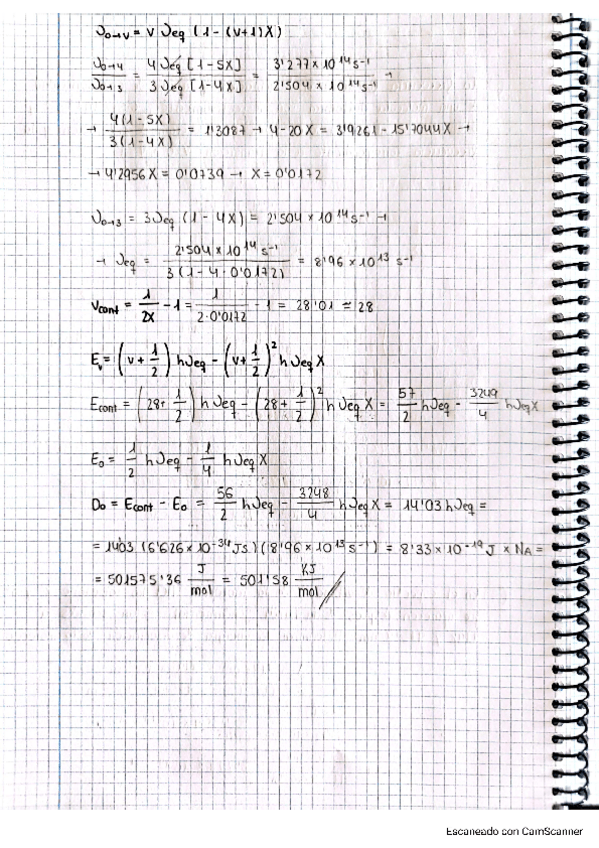 ν₀→v = v νeq (1 - (v+1)X)
ν₀→4 / ν₀→3 = 4νeq [1-5X] / 3νeq [1-4X] = 3'277 x 10¹⁴ s⁻¹ / 2'504 x 10¹⁴ s⁻¹ →
→ 4(1-5X) / 3(1-4X) = 1'3087 → 4-20X = 3'9261 - 15'7044X →
→ 4'2956X = 0'0739 → X = 0'0172
ν₀→3 = 3νeq (1-4X) = 2'504 x 10¹⁴ s⁻¹ →
→ νeq = 2'504 x 10¹⁴ s⁻¹ / 3(1-4·0'0172) = 8'96 x 10¹³ s⁻¹
Vcont = 1/2x - 1 = 1 / 2·0'0172 - 1 = 28'01 ≃ 28
Ev = (v + 1/2) hνeq - (v + 1/2)² hνeq X
Econt = (28 + 1/2) hνeq - (28 + 1/2)² hνeq X = 57/2 hνeq - 3249/4 hνeqX
E₀ = 1/2 hνeq - 1/4 hνeq X
D₀ = Econt - E₀ = 56/2 hνeq - 3248/4 hνeq X = 14'03 hνeq =
= 14'03 (6'626 x 10⁻³⁴ Js)(8'96 x 10¹³ s⁻¹) = 8'33 x 10⁻¹⁹ J x NA =
= 501575'36 J/mol = 501'58 KJ/mol
Escaneado con CamScanner